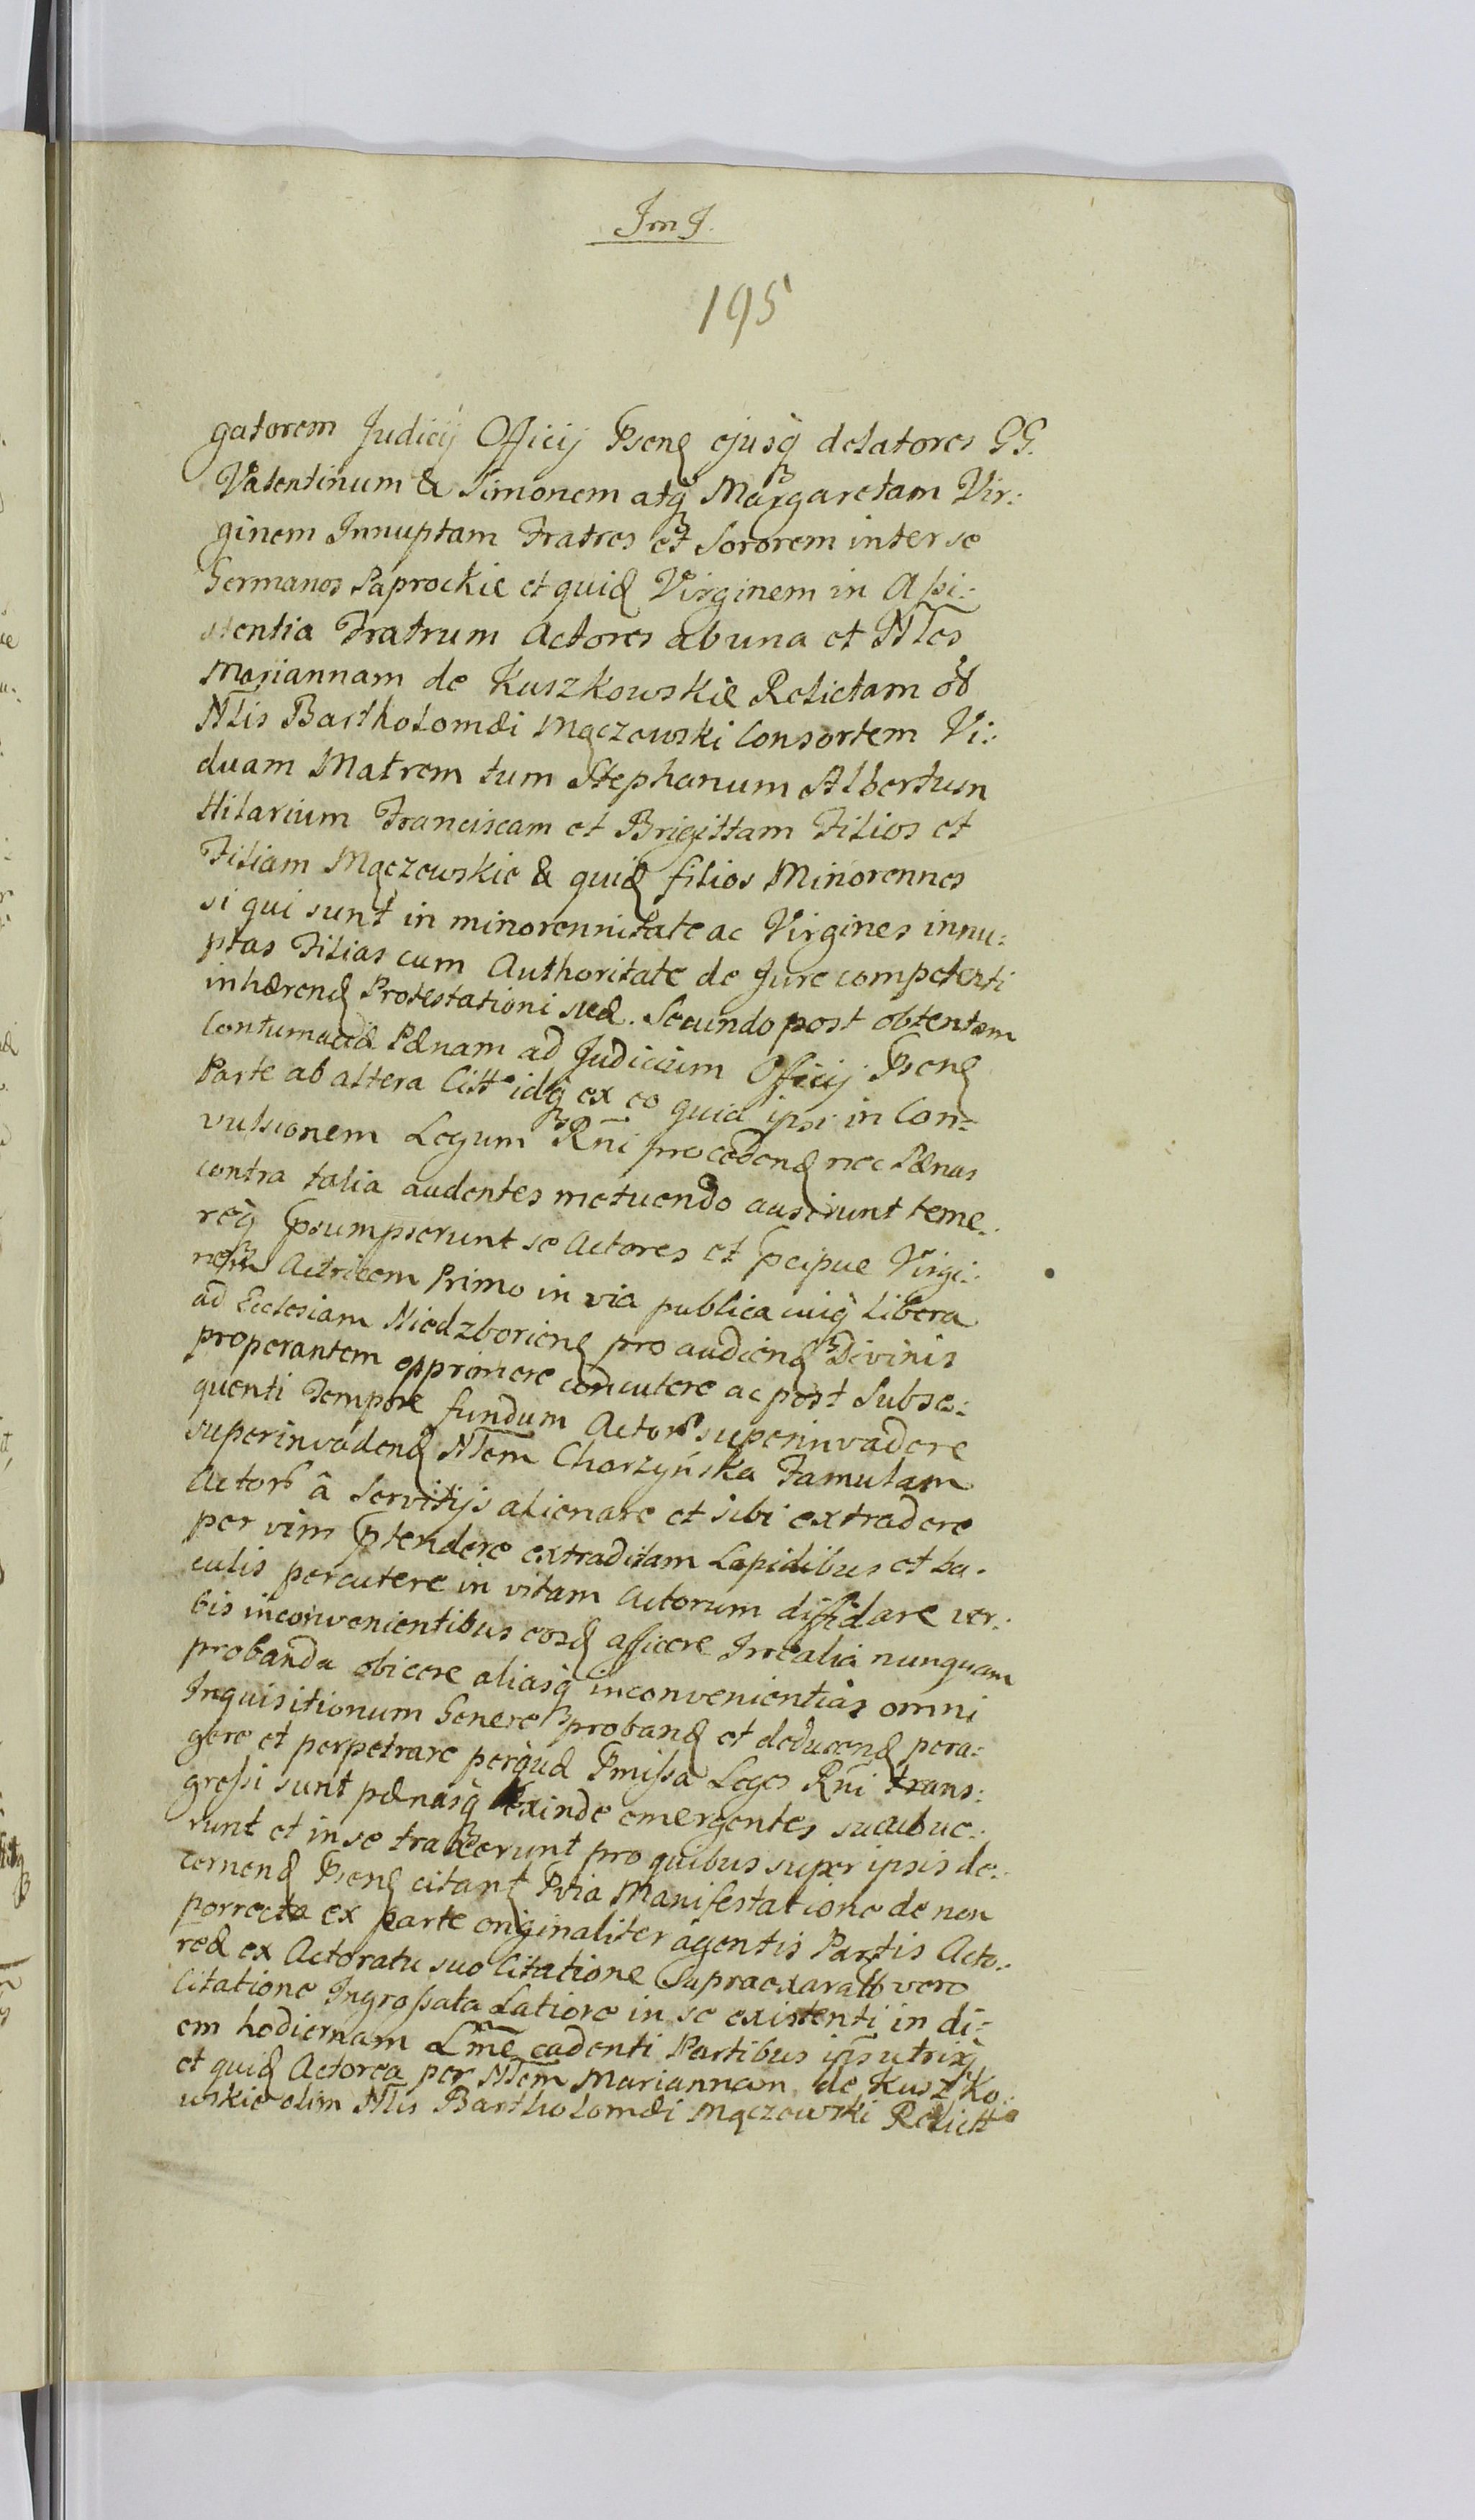 JmJ.
195
gatorem Judicij Officij Psenq ejusq delatores GG.
Valentinum & Simonem atq Margaretam Vir:
ginem Innuptam Fratres et Sororem inter se
Germanos Paprockie et quidq Virginem in Assi:
stentia Fratrum Actores ab una et Nles
Mariannam de Kuszkowskie Relictam ol
Nlis Bartholomæi Mączewski Consortem Vi:
duam Matrem tum Stephanum Albertum
Hilarium Franciscam et Brigittam Filios et
Filiam Mączewskie & quidq filios Minorennes
si qui sunt in minorennitate ac Virgines innu:
ptas Filias cum Authoritate de Jure competenti
inhærendq Protestationi suæ. Secundo post obtentam
Contumaciæ Pænam ad Judicium Officij Psenq
Parte ab altera Citt idq ex eo quia ipsi in Con=
vulsionem Legum Rni procedendq nec Pænas
contra talia audentes metuendo ausi sunt teme:
req Psumpserunt se Actores et Pcipue Virgi:
nem Actricem Primo in via publica cuiq Libera
ad Ecclesiam Niedzboriensq pro audiendq Divinis
properantem opprimere concutere ac post Subse:
quenti Tempore fundum Actor superinvadere
superinvadendq Nlem Chorzyńska Famulam
Actor â Servitijs alienare et sibi extradere
per vim Ptendere extraditam Lapidibus et ba:
culis percutere in vitam Actorum diffidare ver:
bis inconvenientibus eosdq afficere Irrealia nunquam
probanda obicere aliasq inconvenientias omni
Inquisitionum Genere probandq et deducendq pera:
gere et perpetrare perquæ Pmissa Leges Rni trans:
gressi sunt pænasq exinde emergentes succubue:
runt et in se traxerunt pro quibus super ipsis de:
cernendq Psenq citant Pvia Manifestatione de non
porrecta ex parte originaliter agentis Partis Acto:
reæ ex Actoratu suo Citatione Supraexaratt vero
Citatione Ingrossata Latiore in se existenti in di:
em hodiernam Lme cadenti Partibus ipsis utrisq
et quidq Actorea per Nlem Mariannam de Kuszko:
wskie olim Nlis Bartholomæi Mączewski Relictt